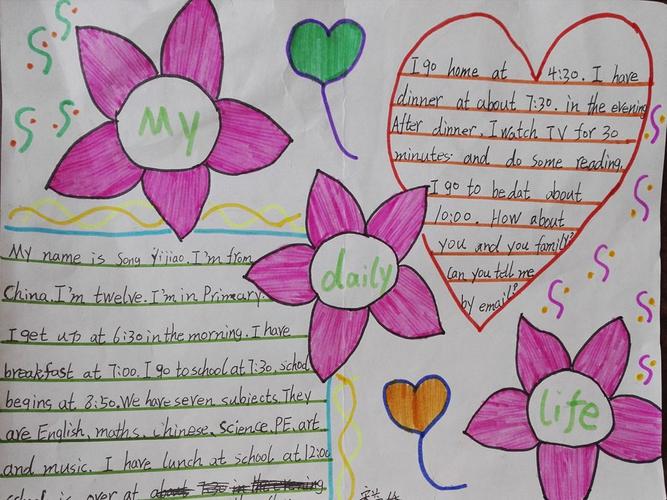 My
daily
life
My name is Song Yijiao. I'm from
China. I'm twelve. I'm in Primary.
I get up at 6:30 in the morning. I have
breakfast at 7:00. I go to school at 7:30. school
begins at 8:50. We have seven subjects They
are English, maths. Chinese. Science. PE. art
and music. I have lunch at school at 12:00
school is over at
I go home at 4:30. I have
dinner at about 7:30. in the evening
After dinner. I watch TV for 30
minutes. and do some reading.
I go to bed at about
10:00. How about
you and you family?
Can you tell me
by email?